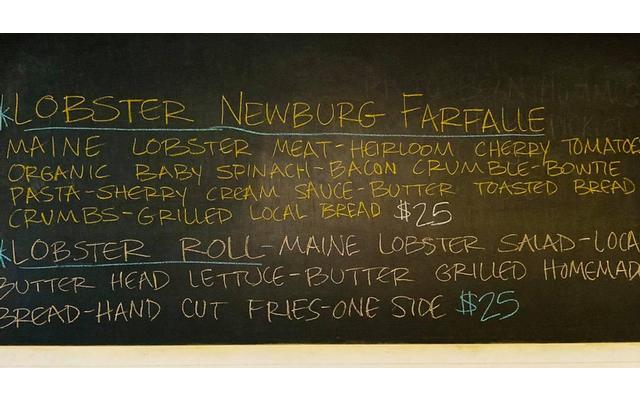 *LOBSTER NEWBURG FARFALLE
MAINE LOBSTER MEAT-HEIRLOOM CHERRY TOMATOES
ORGANIC BABY SPINACH-BACON CRUMBLE-BOWTIE
PASTA-SHERRY CREAM SAUCE-BUTTER TOASTED BREAD
CRUMBS-GRILLED LOCAL BREAD $25
*LOBSTER ROLL-MAINE LOBSTER SALAD-LOCA
BUTTER HEAD LETTUCE-BUTTER GRILLED HOMEMAD
BREAD-HAND CUT FRIES-ONE SIDE $25